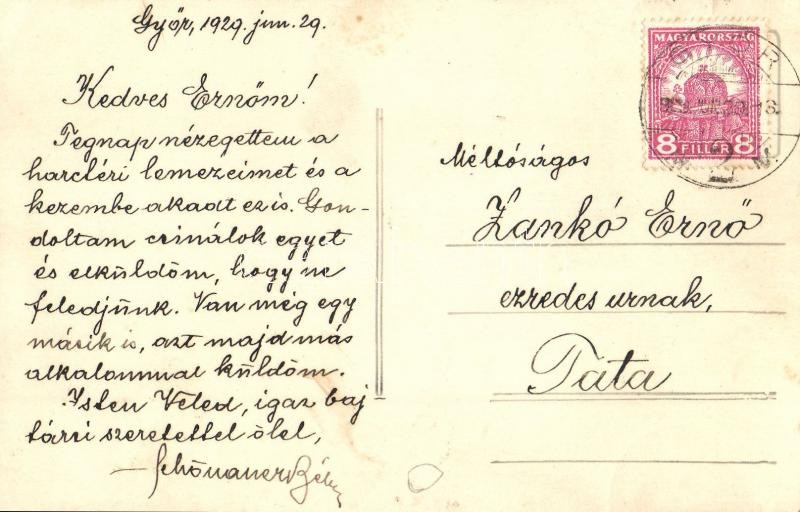 Győr, 1929. jun. 29.
Kedves Ernőm!
Tegnap nézegettem a
harctéri lemezeimet és a
kezembe akadt ez is. Gon-
doltam csinálok egyet
és elküldöm, hogy ne
feledjünk. Van még egy
másik is, azt majd más
alkalommal küldöm.
Isten Veled, igaz baj
társi szeretettel ölel,
MAGYARORSZÁG
8 FILLÉR 8
Méltóságos
Zankó Ernő
ezredes urnak,
Tata